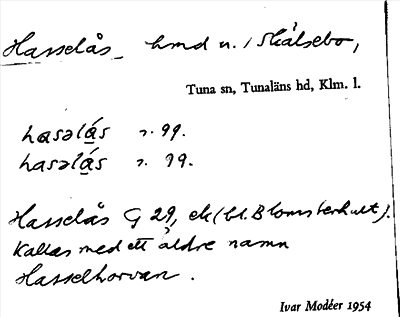 Hasselås hmd u. / Skälsebo,
Tuna sn, Tunaläns hd, Klm. l.
hasəlá̱s r. 99.
hasəlá̱s r. 19.
Hasselås G 29, ek (bl. Blomsterhult).
Kallas med ett äldre namn
Hasselhorvan.
Ivar Modéer 1954